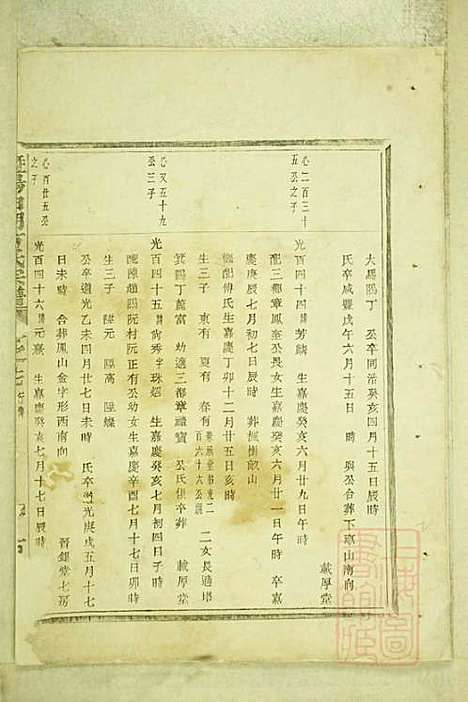 大馬隖丁 公卒同治癸亥四月十五日辰時
氏卒咸豐戊午六月十五日 時 與公合葬下 山南向
載厚堂
心二百三十五公之子
光百四十四諱芳麟 生嘉慶癸亥六月廿九日午時
配三都章鳳奎公長女生嘉慶癸亥六月廿一日午時 卒嘉
慶庚辰七月初七日辰時 葬 山
配傅氏生嘉慶丁卯十二月廿五日亥時
生三子 東有 夏有 春有 二女長適堵
隖丁萬富 幼適三都章禮寶 公氏俱卒葬 載厚堂
心又五十九公三子
光百四十五諱尚秀字珠烟 生嘉慶癸亥七月初四日子時
配陳趙隖阮村阮正有公幼女生嘉慶辛酉七月十七日卯時
生三子 陞元 陞高 陞燦
公卒道光乙未四月廿七日未時 氏卒道光庚戌五月十七
日未時 合葬鳳山金字形西南向 晉錫堂七房
心百廿五公之子
光百四十六諱元熹 生嘉慶癸亥七月十七日辰時